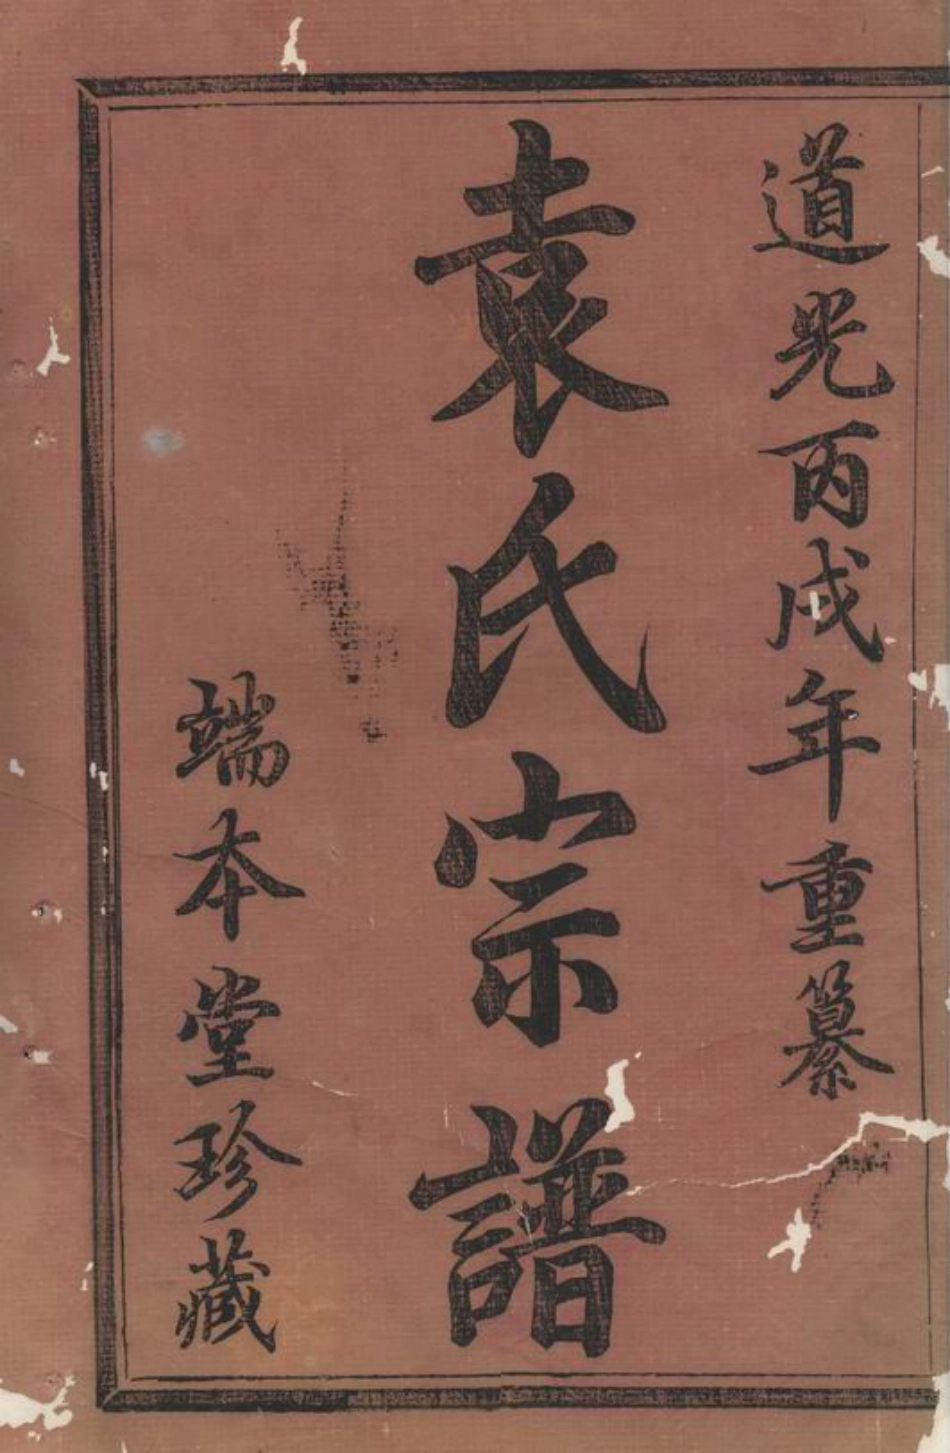 道光丙戌年重纂
袁氏宗譜
端本堂珍藏